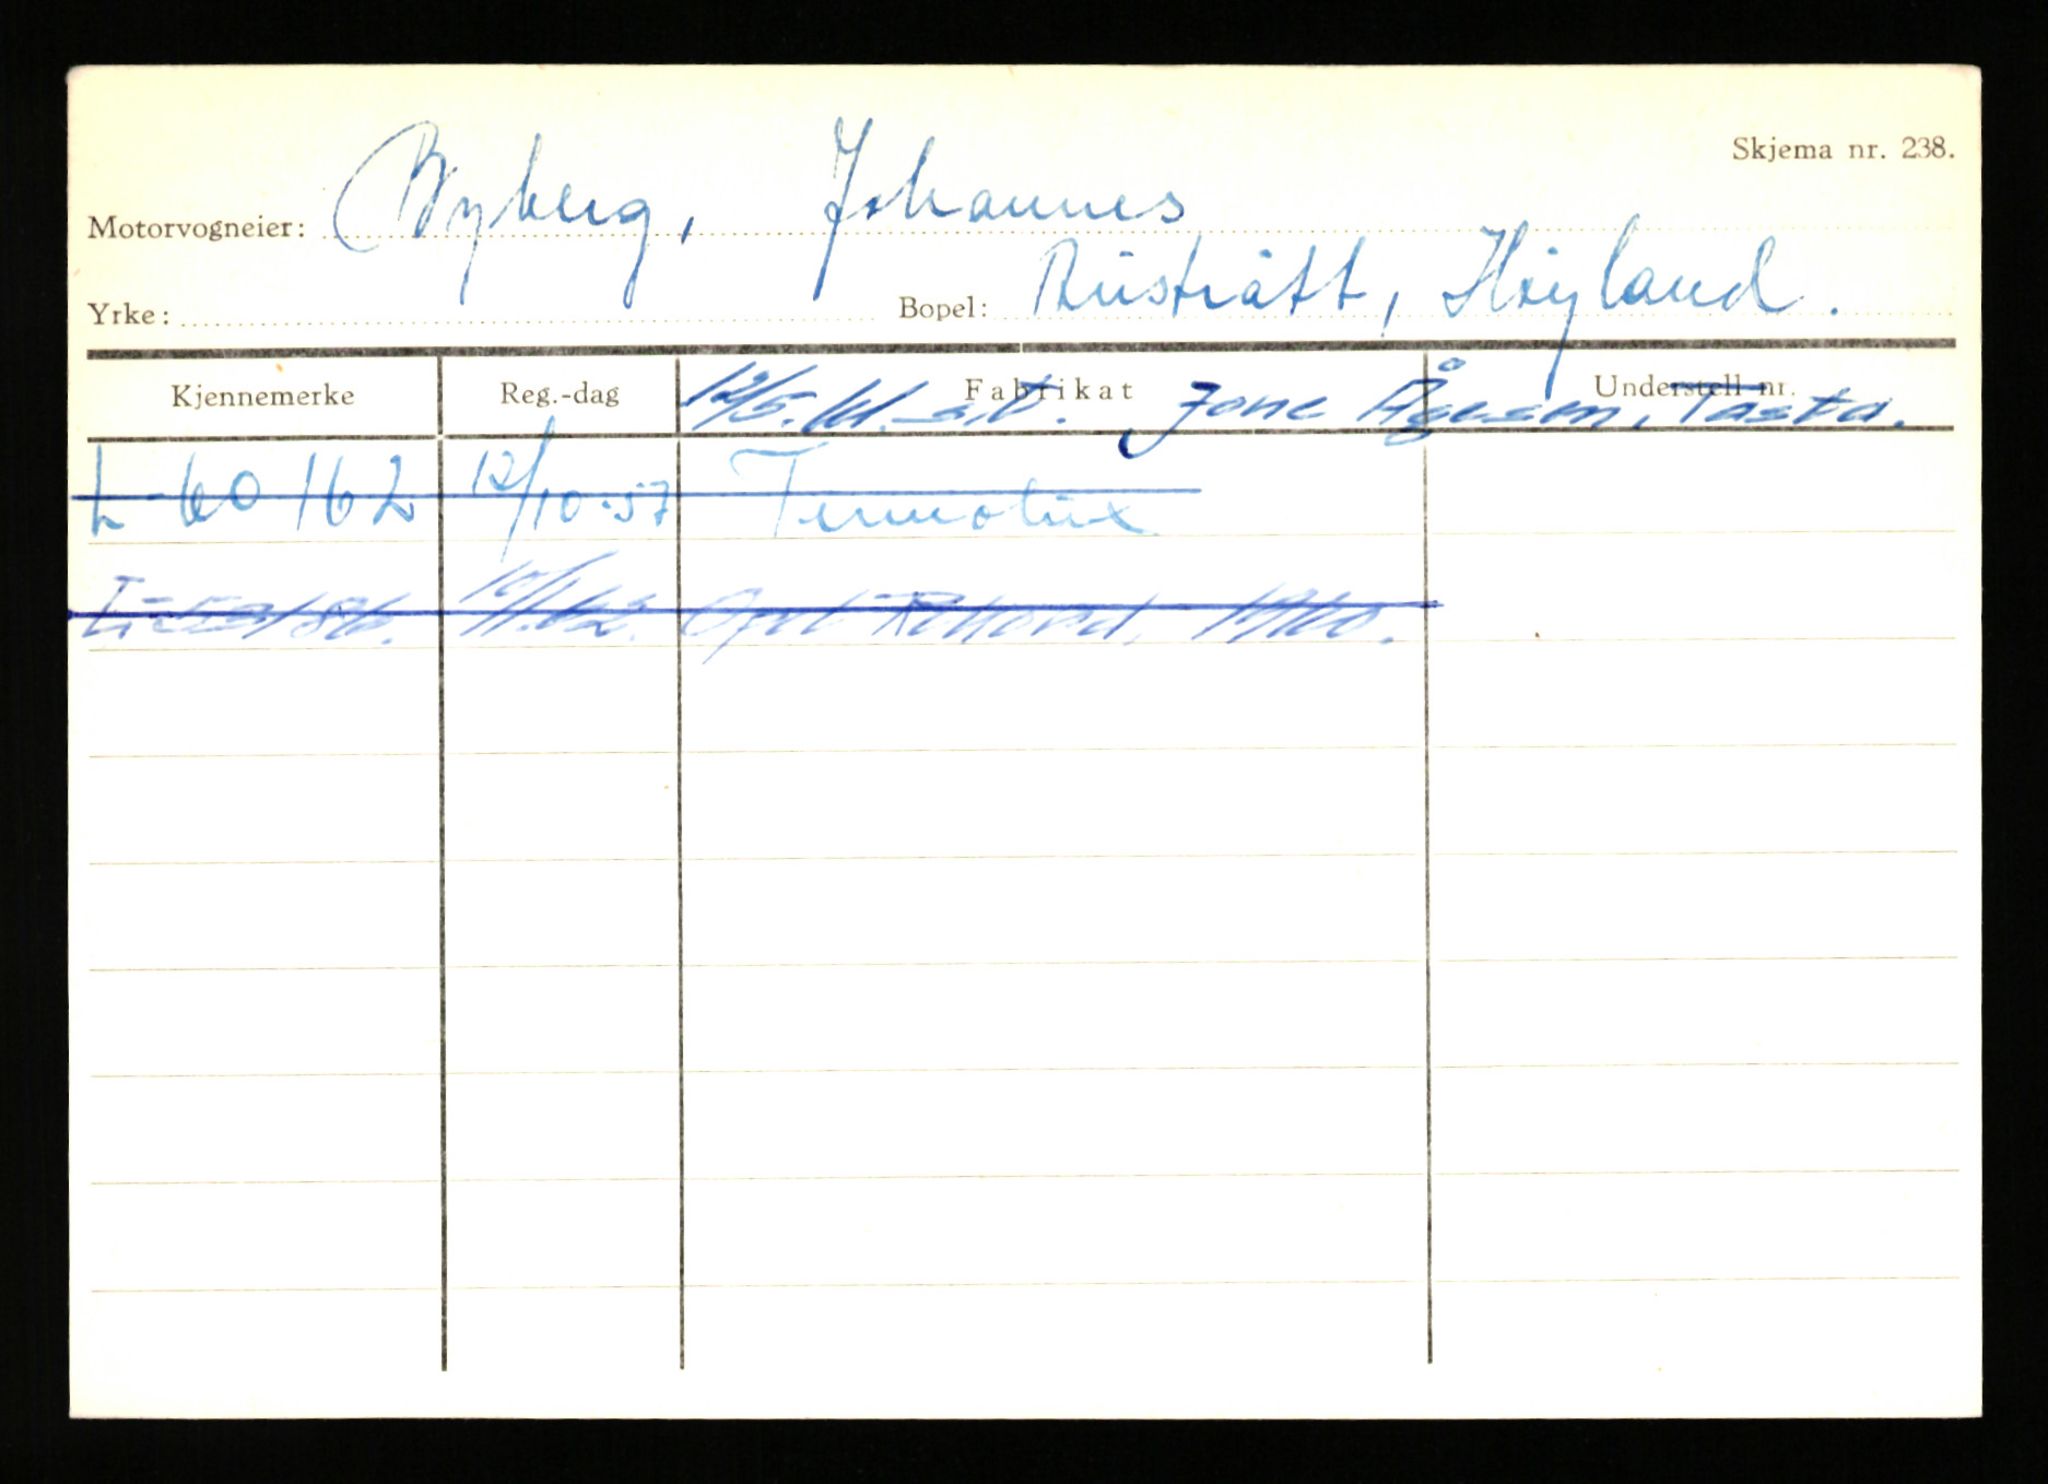 Skjema nr. 238.
Motorvogneier: Nyberg, Johannes
Yrke: Bopel: Rusträtt, Høyland.
Kjennemerke Reg.-dag Fabrikat Understell-nr.
12/5.61. s.t. Jone Ågesen, Tasta.
L-60162 12/10-57 Termolux
Opel Rekord, 1960.